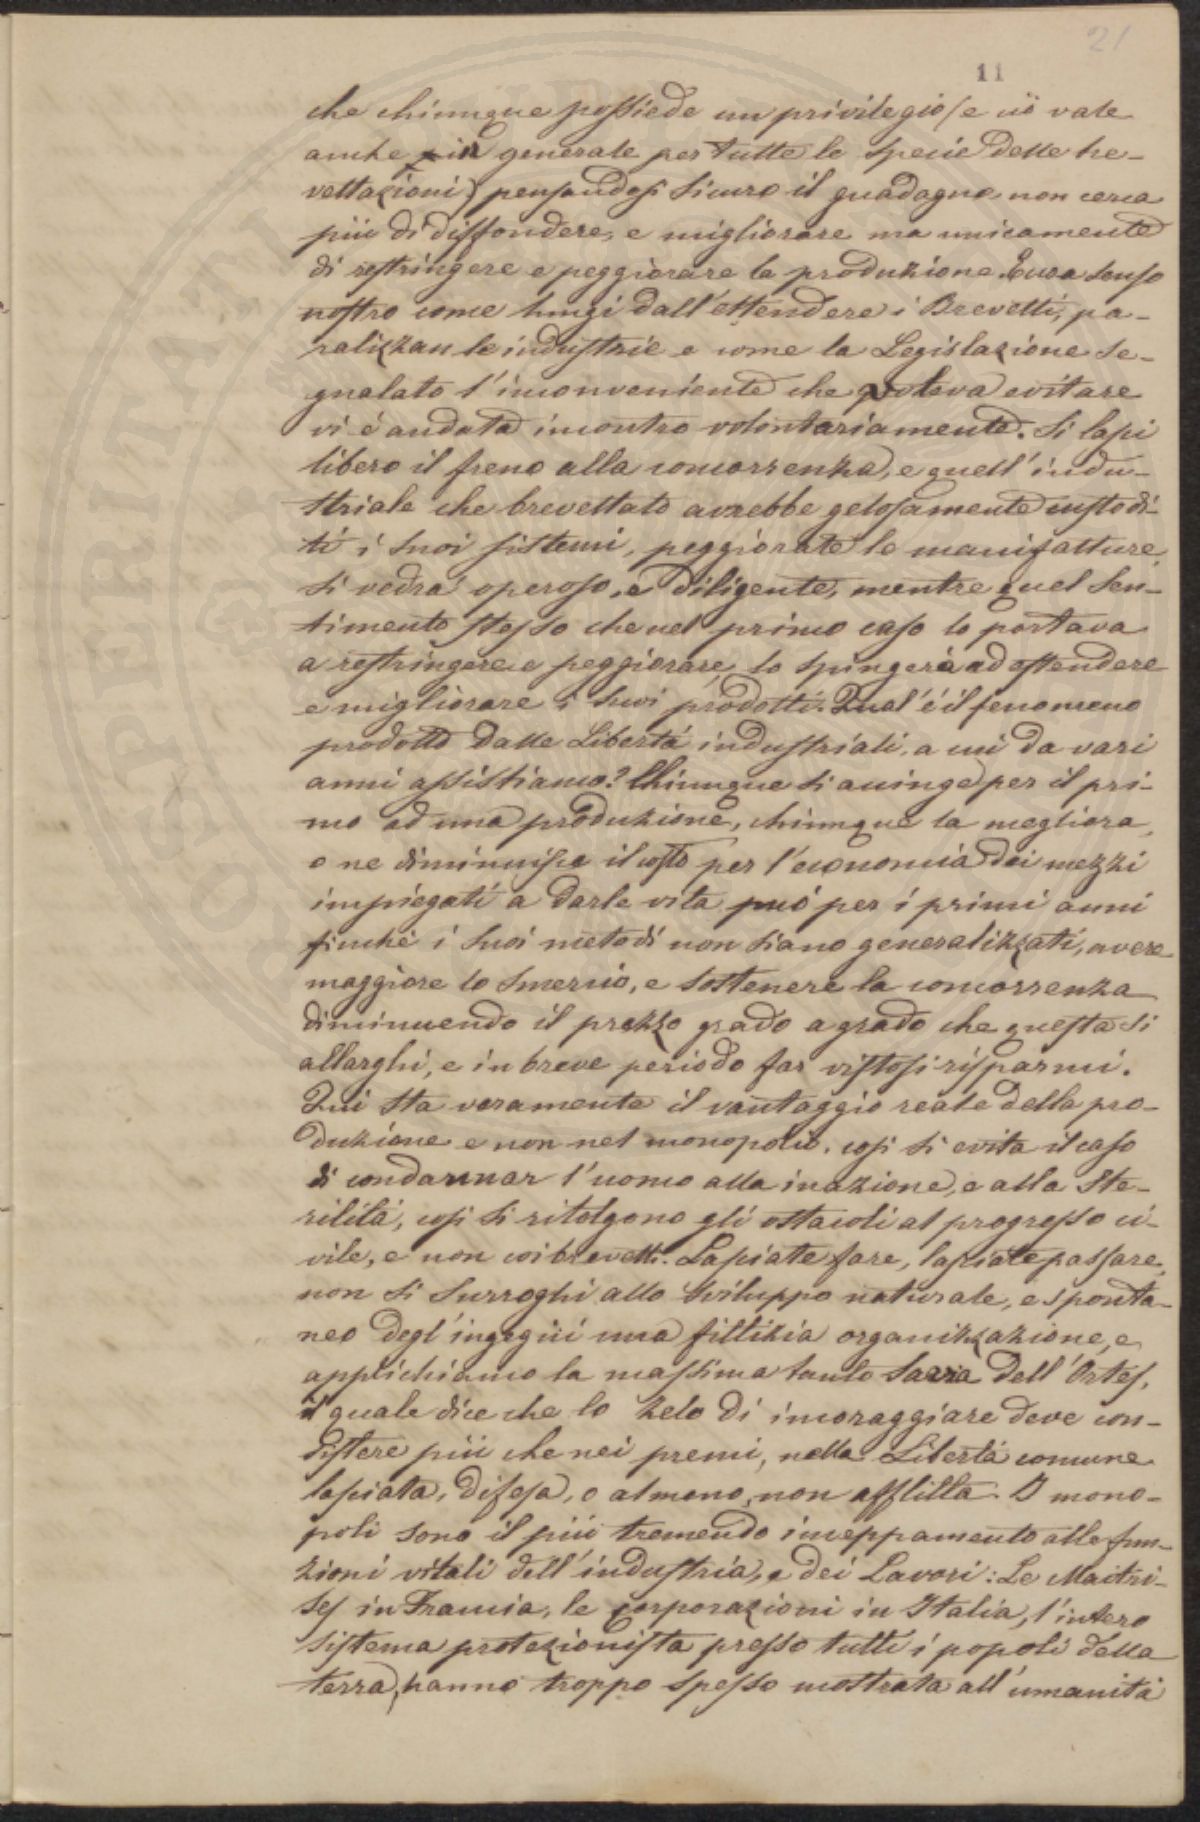 21
11
che chiunque possiede un privilegio (e ciò vale
anche più generale per tutte le specie delle bre-
vettazioni) pensandosi sicuro il guadagno non cerca
più di diffondere, e migliorare ma unicamente
di restringere e peggiorare la produzione. Ecco a senso
nostro come lungi dall'estendere i Brevetti, pa-
ralizzan le industrie e come la Legislazione se-
gnalato l'inconveniente che poteva evitare
vi é andata incontro volontariamente. Si lasci
libero il freno alla concorrenza, e quell'indu-
striale che brevettato avrebbe gelosamente custodi-
ti i suoi sistemi, peggiorate le manifatture
si vedrá operoso, e diligente, mentre quel sen-
timento stesso che nel primo caso lo portava
a restringere e peggiorare, lo spingerà ad estendere
e migliorare i suoi prodotti. Qual'é il fenomeno
prodotto dalle Libertá industriali, a cui da vari
anni assistiamo? Chiunque si accinge per il pri-
mo ad una produzione, chiunque la megliora,
o ne diminuisce il costo per l'economia dei mezzi
impiegati a darle vita può per i primi anni
finché i suoi metodi non siano generalizzati, avere
maggiore lo smercio, e sostenere la concorrenza
diminuendo il prezzo grado a grado che questa si
allarghi, e in breve periodo far vistosi risparmi.
Qui sta veramente il vantaggio reale della pro-
duzione e non nel monopolio. cosi si evita il caso
di condannar l'uomo alla inazione, e alla ste-
rilitá, cosi si ritolgono gli ostacoli al progresso ci-
vile, e non coi brevetti. Lasciate fare, lasciate passare,
non si surroghi allo sviluppo naturale, e sponta-
neo degl'ingegni una fittizia organizzazione, e
applichiamo la massima tanto savia dell'Ortes,
il quale dice che lo zelo di incoraggiare deve con-
sistere più che nei premi, nella Libertá comune
lasciata, difesa, o almeno non afflitta. I mono-
poli sono il più tremendo inceppamento alle fun-
zioni vitali dell'industria, e dei Lavori: Le Maitri-
ses in Francia, le corporazioni in Italia, l'intero
sistema protezionista presso tutti i popoli della
terra, hanno troppo spesso mostrata all'umanitá
PROSPERITATI